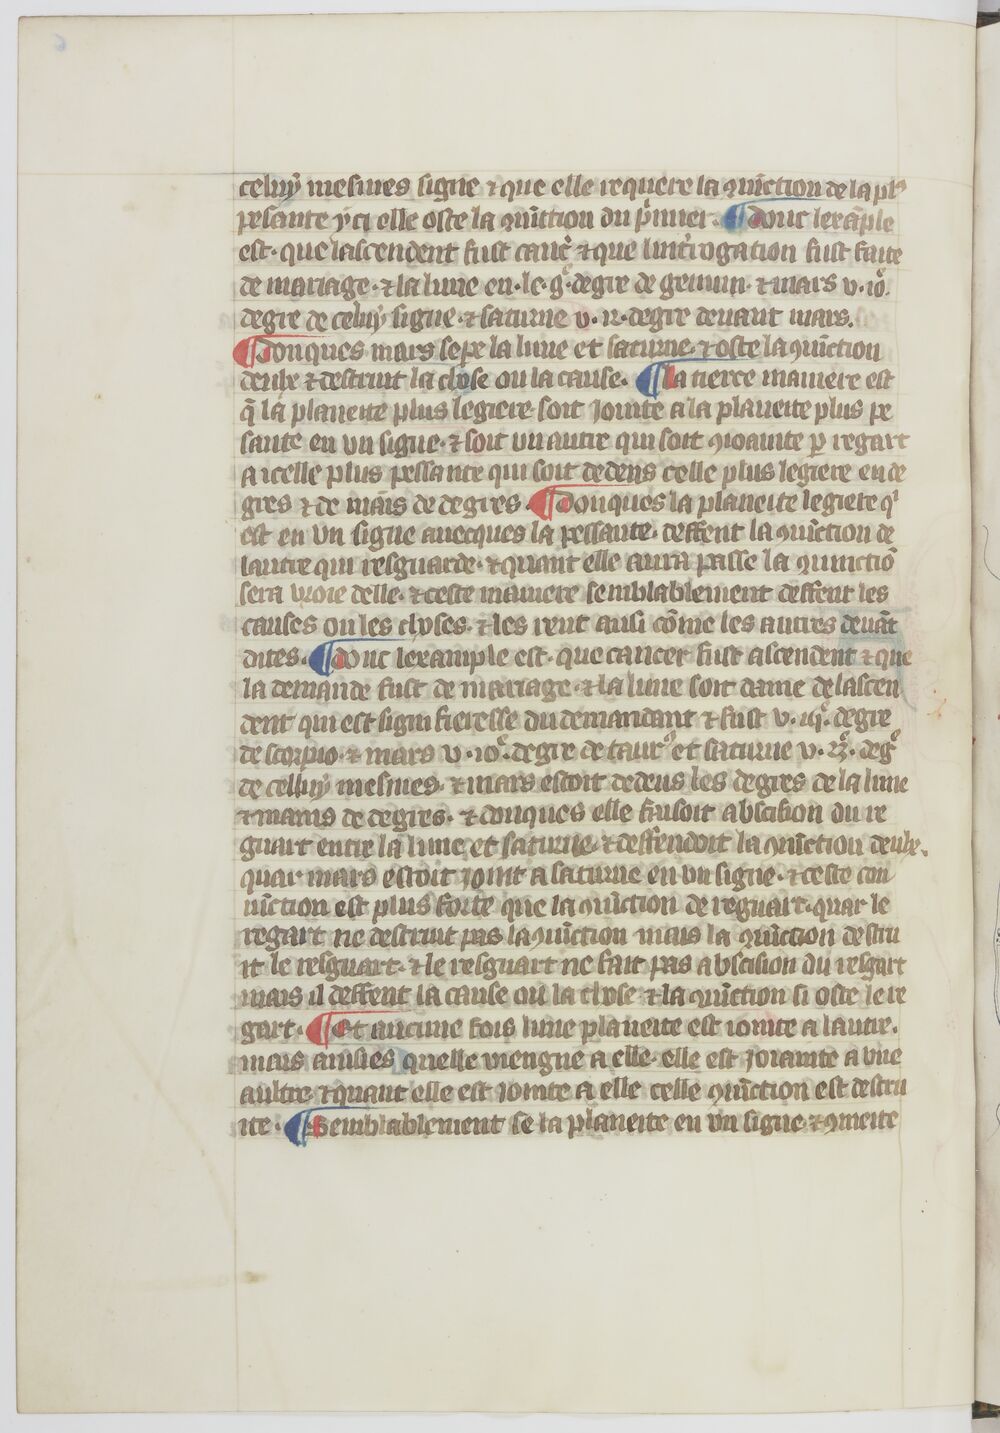 celuy mesmes signe ⁊ que elle requere la ꝯiũction de la plꝰ
pesante yci elle oste la ꝯiũction du p̃mier. ¶ donc lexãple
est. que lascendent fust canc̃ ⁊ que lint̃rogation fust faite
de mariage. ⁊ la lune en. le. degre de gemini. ⁊ mars v. 10.
degre de celuy signe. ⁊ saturne v. degre deuant mars.
¶ donques mars sepe la lune et saturne. ⁊ oste la ꝯiũction
deulx ⁊ destruit la chose ou la cause. ¶ la tierce maniere est
q̃ la planette plus legiere soit Jointe a la planette plus pe
sante en vn signe. ⁊ soit vn autre qui soit ꝯioainte ꝑ regart
a icelle plus pessante qui soit dedens celle plus legiere en de
gres ⁊ de mais̃ de degres. ¶ donques la planeite legiere qⁱ
est en vn signe auecques la pessante. deffent la ꝯiũction de
lautre qui resguarde. ⁊ quant elle aura passe la ꝯiunctiõ
sera vroie delle. ⁊ ceste maniere semblablement deffent les
causes ou les choses. ⁊ les rent ausi cõme les autres deuãt
dites. ¶ donc lexample est. que cancer fust ascendent ⁊ que
la demande fust de mariage. ⁊ la lune soit dame de lascen
dent qui est signifieresse du demandant ⁊ fust v. degre
de scorpio. ⁊ mars v. 10. degre de taurꝰ et saturne v. deg̃
de celluy mesmes. ⁊ mars estoit dedens les degres de la lune
⁊ mains de degres. ⁊ donques elle faisoit abscision du re
guart entre la lune et saturne. ⁊ deffendoit la ꝯiũction deulx.
quar mars estoit joint a saturne en vn signe. ⁊ ceste con
iũction est plus forte que la ꝯiũction de reguart. quar le
regart ne destruit pas la ꝯiũction mais la ꝯiũction destru
it le resguart. ⁊ le resguart ne fait pas abscision du resgart
mais il deffent la cause ou la chose ⁊ la ꝯiũction si oste le re
gart. ¶ Et aucune fois lune planeite est iointe a lautre.
mais ainsies quelle viengne a elle. elle est Joiainte a vne
aultre ⁊ quant elle est Jointe a elle celle ꝯiũction est destru
ite. ¶ Semblablement se la planeite en vn signe ⁊ ꝯmeite